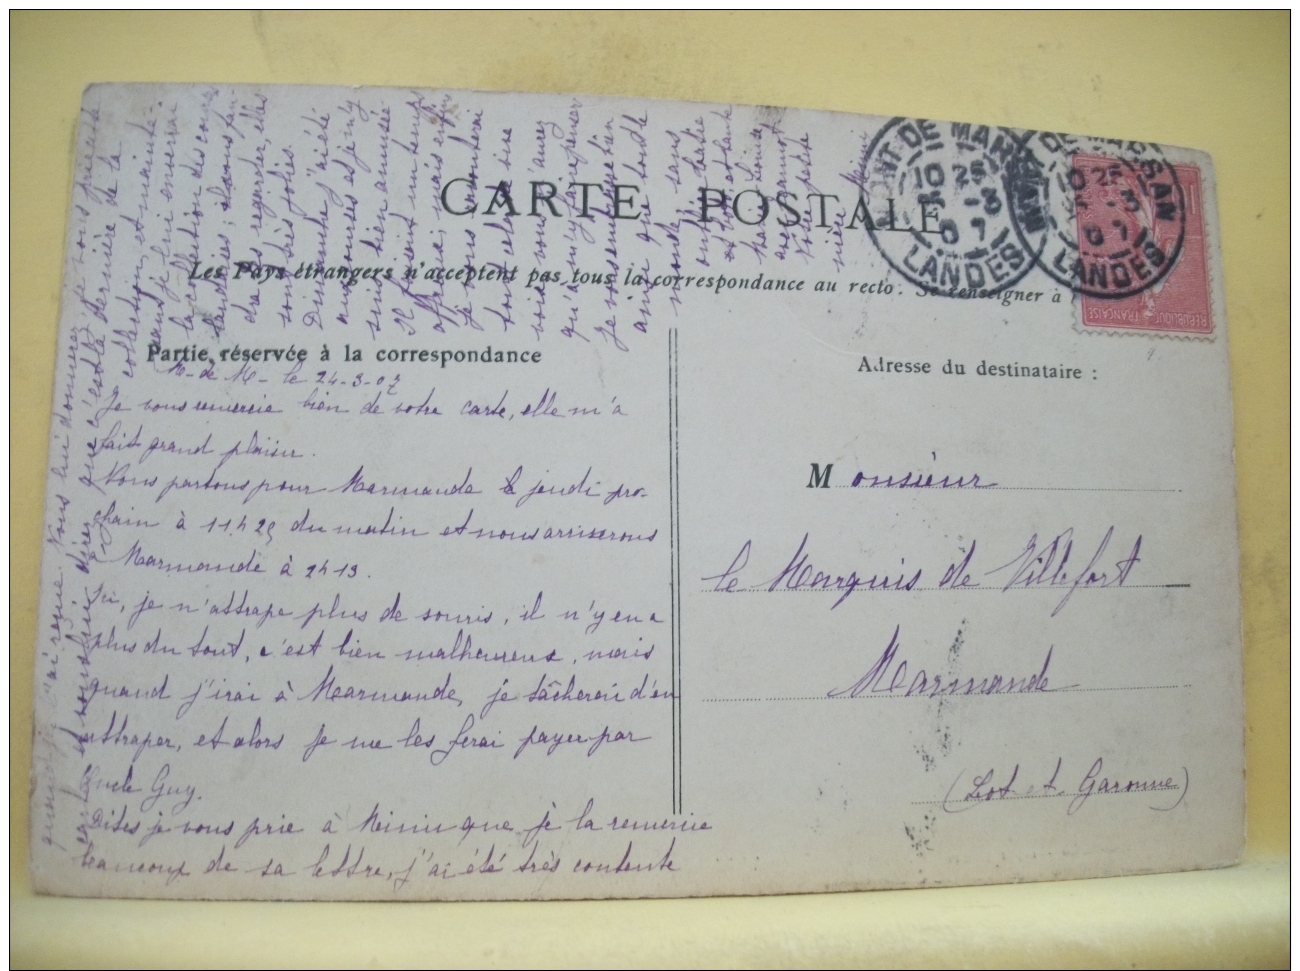 CARTE POSTALE
Les Pays étrangers n'acceptent pas tous la correspondance au recto. Se renseigner à
Partie réservée à la correspondance
Adresse du destinataire :
M-de M- le 24-3-07
Je vous remercie bien de votre carte, elle m'a
fait grand plaisir.
Nous partons pour Marmande le jeudi pro-
chain à 11h25 du matin et nous arriverons
Marmande à 2h13.
Ici, je n'attrape plus de souris, il n'y en a
plus du tout, c'est bien malheureux, mais
quand j'irai à Marmande, je tâcherai d'en
attraper, et alors je me les ferai payer par
Oncle Guy.
Dites je vous prie à Mimi que je la remercie
beaucoup de sa lettre, j'ai été très contente
quand je l'ai reçue. Vous lui donnerez, je vous prie cette
carte en vous lui direz que c'est la dernière de la
collection, et mainte-
nant je lui enverrai
la collection des courses
landaises; elles
regarder, elles
sont très jolies.
Dimanche, j'ai été
aux courses et je m'y
suis bien amusée
Il faisait un temps
affreux; mais enfin
je vous raconterai
tout cela de vive
voix, vous n'aurez
qu'à m'y faire penser
Je vous embrasse bien
ainsi que tout le
monde sans
oublier
Votre petite
nièce Mimi
Monsieur
le Marquis de Villefort
Marmande
(Lot et Garonne)
MONT DE MARSAN
10 25
-3
07
LANDES
MONT DE MARSAN
10 25
-3
07
LANDES
REPUBLIQUE FRANÇAISE